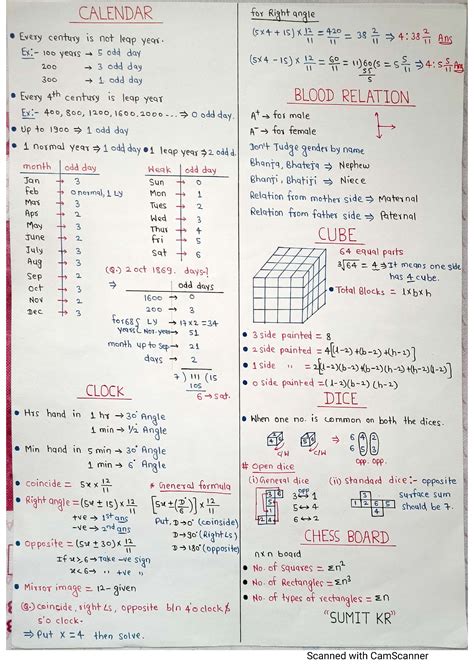 CALENDAR
• Every century is not leap year.
Ex:- 100 years → 5 odd day
200 → 3 odd day
300 → 1 odd day
• Every 4th century is leap year
Ex:- 400, 800, 1200, 1600, 2000... ⇒ 0 odd day.
• Up to 1900 ⇒ 1 odd day
• 1 normal year ⇒ 1 odd day • 1 leap year ⇒ 2 odd d.
month odd day
Jan → 3
Feb → 0 normal, 1 LY
Mar → 3
Apr → 2
May → 3
June → 2
July → 3
Aug → 3
Sep → 2
Oct → 3
Nov → 2
Dec → 3
Weak odd day
Sun → 0
Mon → 1
Tue → 2
Wed → 3
Thur → 4
Fri → 5
Sat → 6
(Q.) 2 oct 1869. days-?
⇒ odd days
1600 → 0
200 → 3
for 68 years LY → 17×2 = 34
Not → 51
month up to Sep → 21
days → 2
7) 111 (15
105
6 → sat.
CLOCK
• Hrs hand in 1 hr → 30° Angle
1 min → 1/2 Angle
• Min hand in 5 min → 30° Angle
1 min → 6° Angle
• coincide = 5x × 12/11
* General formula
[5x ± (D°/6)] × 12/11
• Right angle = (5x ± 15) × 12/11
+ve → 1st ans
-ve → 2nd ans
Put, D → 0° (coinside)
D → 90° (Right Ls)
D → 180° (opposite)
• Opposite = (5x ± 30) × 12/11
If x > 6 → Take -ve sign
x < 6 → " +ve "
• Mirror image = 12 - given
(Q.) coincide, right Ls, opposite b/n 4 o'clock & 5 o'clock.
⇒ Put x = 4 then solve.
for Right angle
(5×4+15) × 12/11 = 420/11 = 38 2/11 ⇒ 4:38 2/11 Ans
(5×4-15) × 12/11 = 60/11 = 11)60(5 = 5 5/11 ⇒ 4:5 5/11 Ans
55
5
BLOOD RELATION
A+ → for male
A- → for female
Don't Judge gender by name
Bhanja, Bhateja → Nephew
Bhanji, Bhatiji → Niece
Relation from mother side → Maternal
Relation from father side → Paternal
CUBE
64 equal parts
3√64 = 4 ⇒ It means one side has 4 cube.
• Total Blocks = l×b×h
• 3 side painted = 8
• 2 side painted = 4[(l-2)+(b-2)+(h-2)]
• 1 side " = 2[(l-2)(b-2)+(b-2)(h-2)+(h-2)(l-2)]
• 0 side painted = (l-2)(b-2)(h-2)
DICE
• When one no. is common on both the dices.
C/W C/W
⇒ 6 4 2
6 5 3
opp. opp.
# Open dice
(i) General dice
3 ↔ 1
5 ↔ 4
6 ↔ 2
(ii) standard dice:- opposite surface sum should be 7.
CHESS BOARD
n×n board
• No. of Squares = Σn²
• No. of Rectangles = Σn³
• No. of types of rectangles = Σn
"SUMIT KR"
Scanned with CamScanner